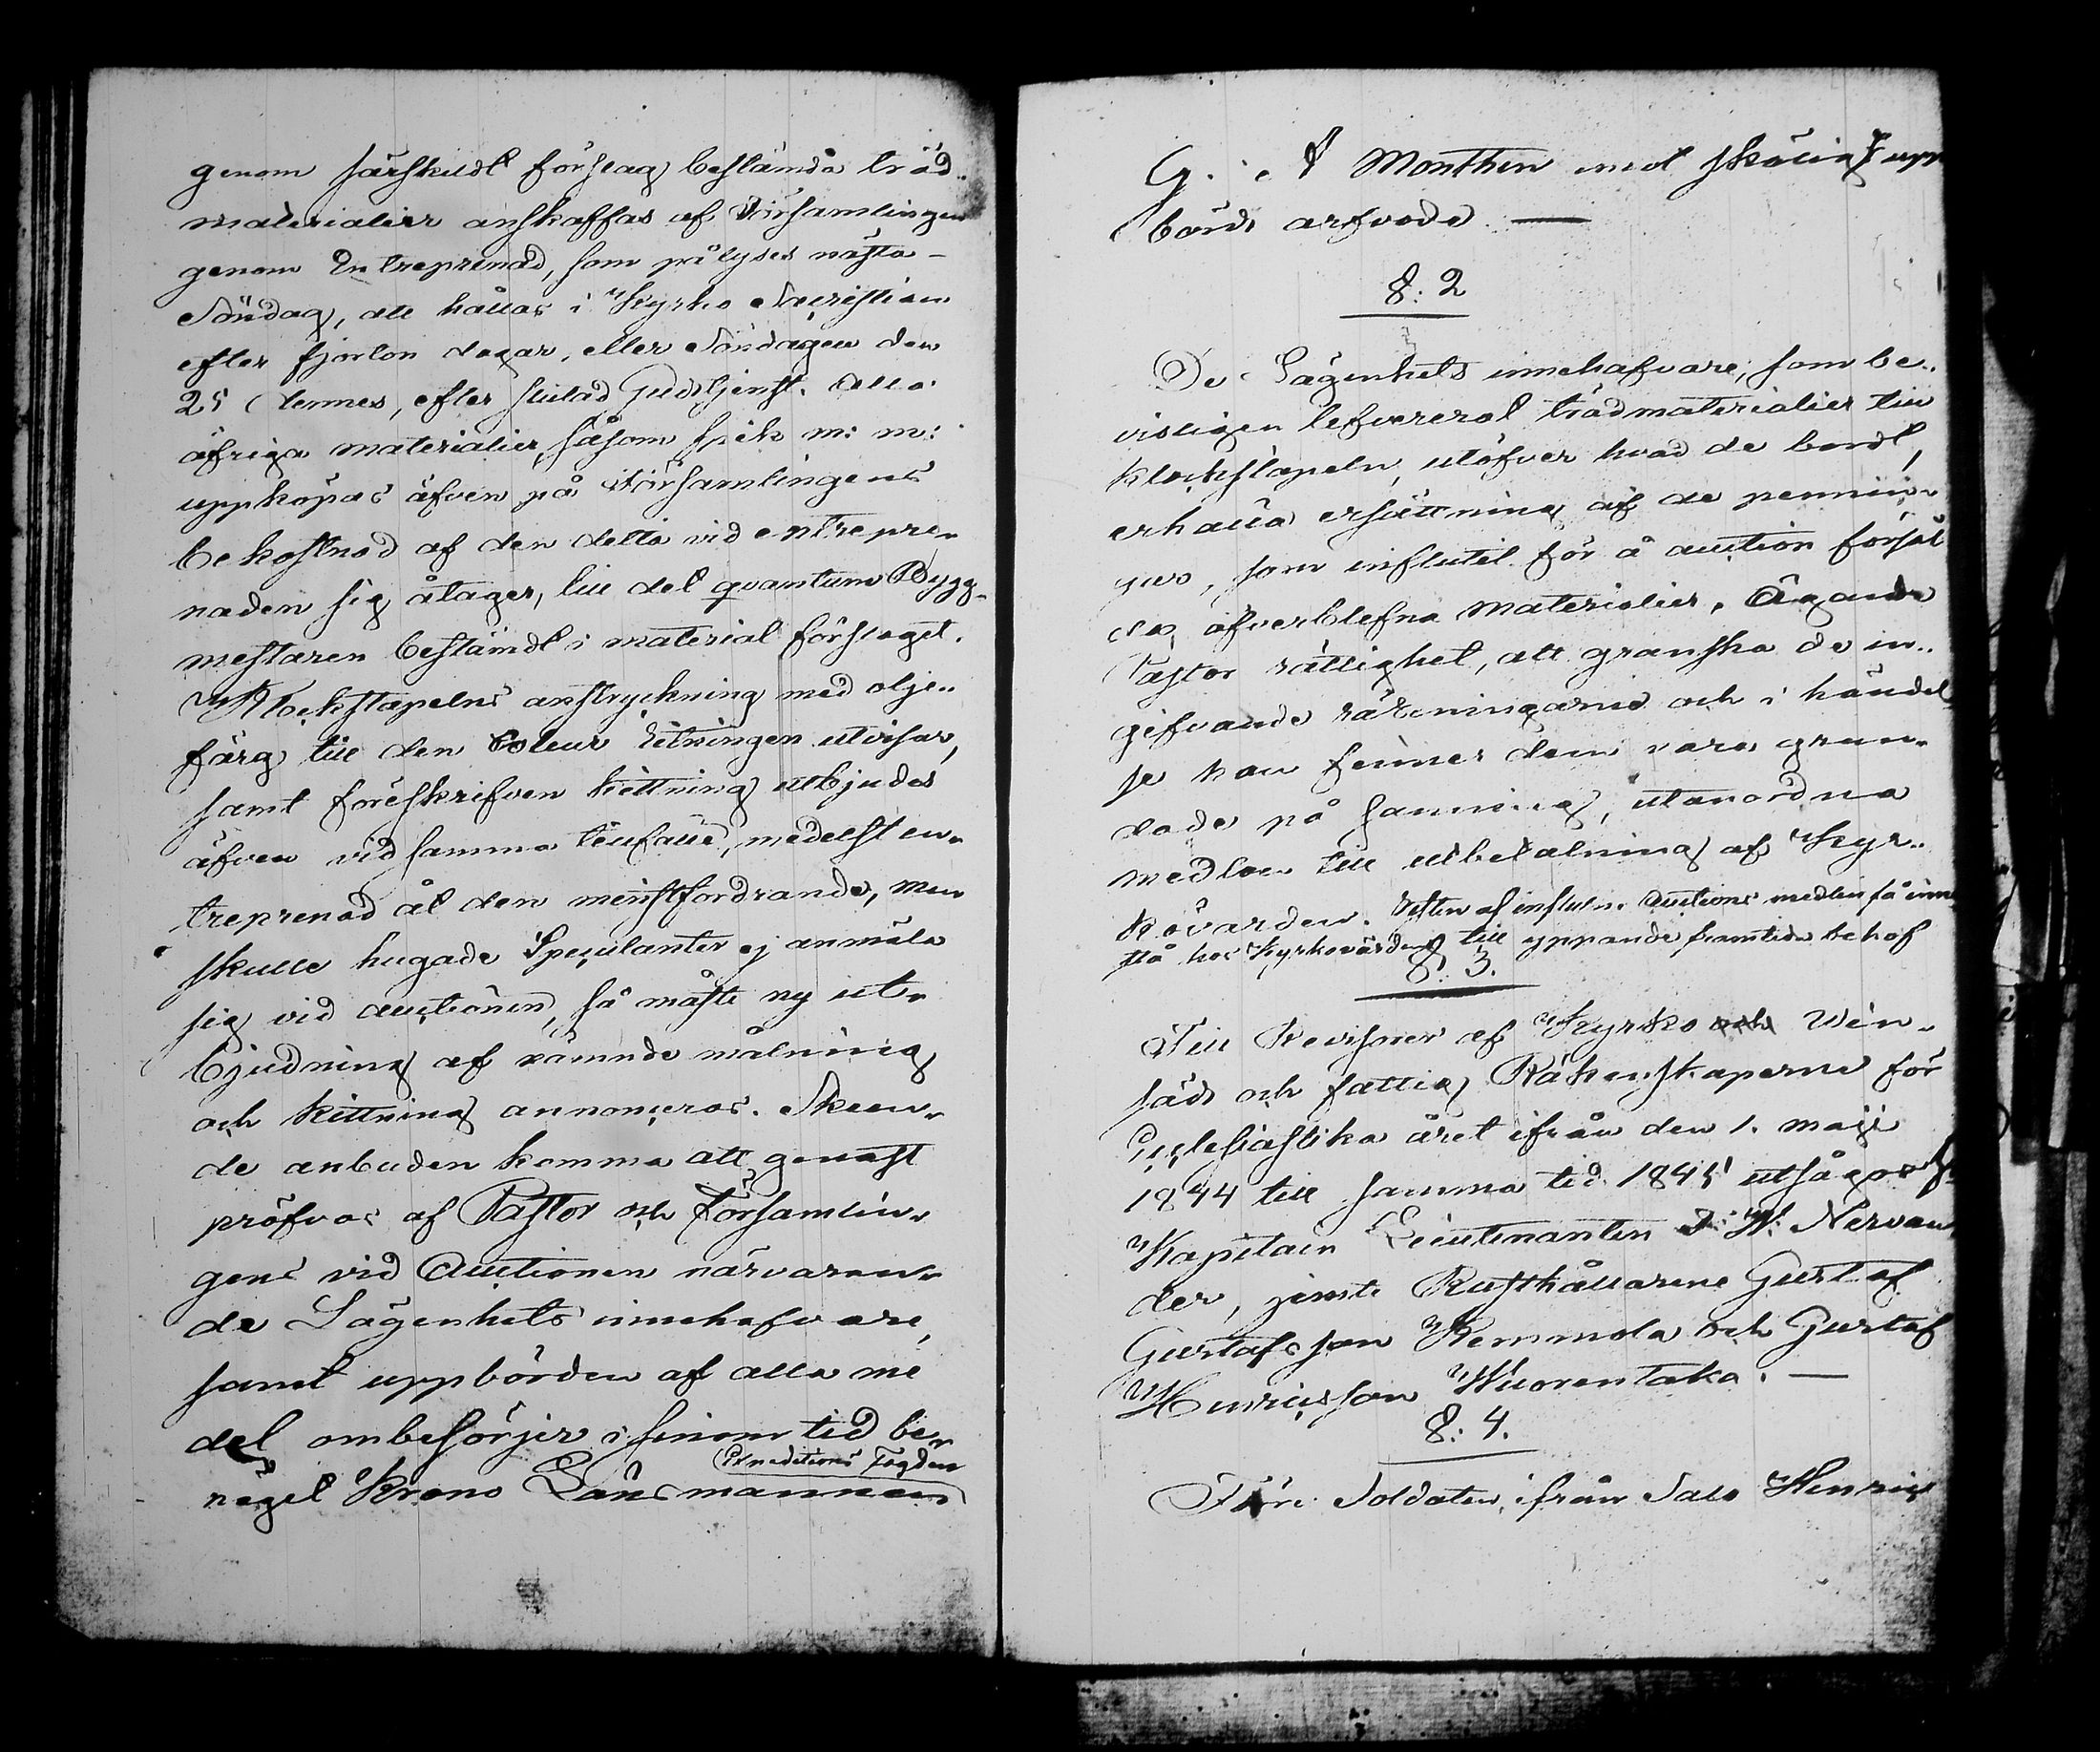 genom särskildt förslag bestämda träd-
materialier anskaffas af Församlingen
genom Entreprenad, som pålyses nästa
Söndag, att hållas i Kyrko Sacristian
efter fjorton dagar, eller Söndagen den
25 dennes, efter slutad Gudstjenst. Alla
öfriga materialier, såsom spik m: m:
uppköpas äfven på Församlingens
bekostnad af den detta vid entrepre-
naden sig åtager, till det quantum Bygg-
mestaren bestämdt i material förslaget.
Klockstapelns anstryckning med olje-
färg till den Coleur ritningen utvisar,
samt föreskrifven kittning utbjudes
äfven vid samma tillfälle, medelst en-
treprenad åt den minstfordrande, men
skulle hugade Speculanter ej anmäla
sig vid auctionen, så måste ny ut-
bjudning af nämnde målning
och kittning annonceras. Skeen-
de anbuden komma att genast
pröfvas af Pastor och Församlin-
gens vid Auctionen närvaran-
de Lägenhets innehafvare,
samt uppbörden af alla me
del ombesörjer i sinom tid be-
Expeditions Fogden
näget Krono Länsmannen
G. A Monthen mot skälig upp
börds arfvode. —
§. 2
De Lägenhets innehafvare, som be-
visligen lefvererat trädmaterialier till
klockstapeln, utöfver hvad de bordt,
erhålla ersättning af de pennin-
gar, som influtit för å auction försål
da öfverblefna materialier. Ägande
Pastor rättighet, att granska de in-
gifvande räkningarne och i händel
se han finner dem vara grun-
dade på sanning, utanordna
medlen till utbetalning af Kyr-
kovärden. Resten af influtn. Auctions medlen få inne
stå hos Kyrkovärden till yppande framtida behof
§. 3.
Till Revisorer af Kyrko och Win-
säds och fattig Räkenskaperne för
Ecclesiastika året ifrån den 1. maji
1844 till samma tid 1845 utsågos H.
Kapitain Lieutenanten J: W: Nervan
der, jemte Rusthållarene Gustaf
Gustafsson Kemmola och Gustaf
Henricsson Wuorentaka. —
§. 4.
Före Soldaten, ifrån Salo Henric